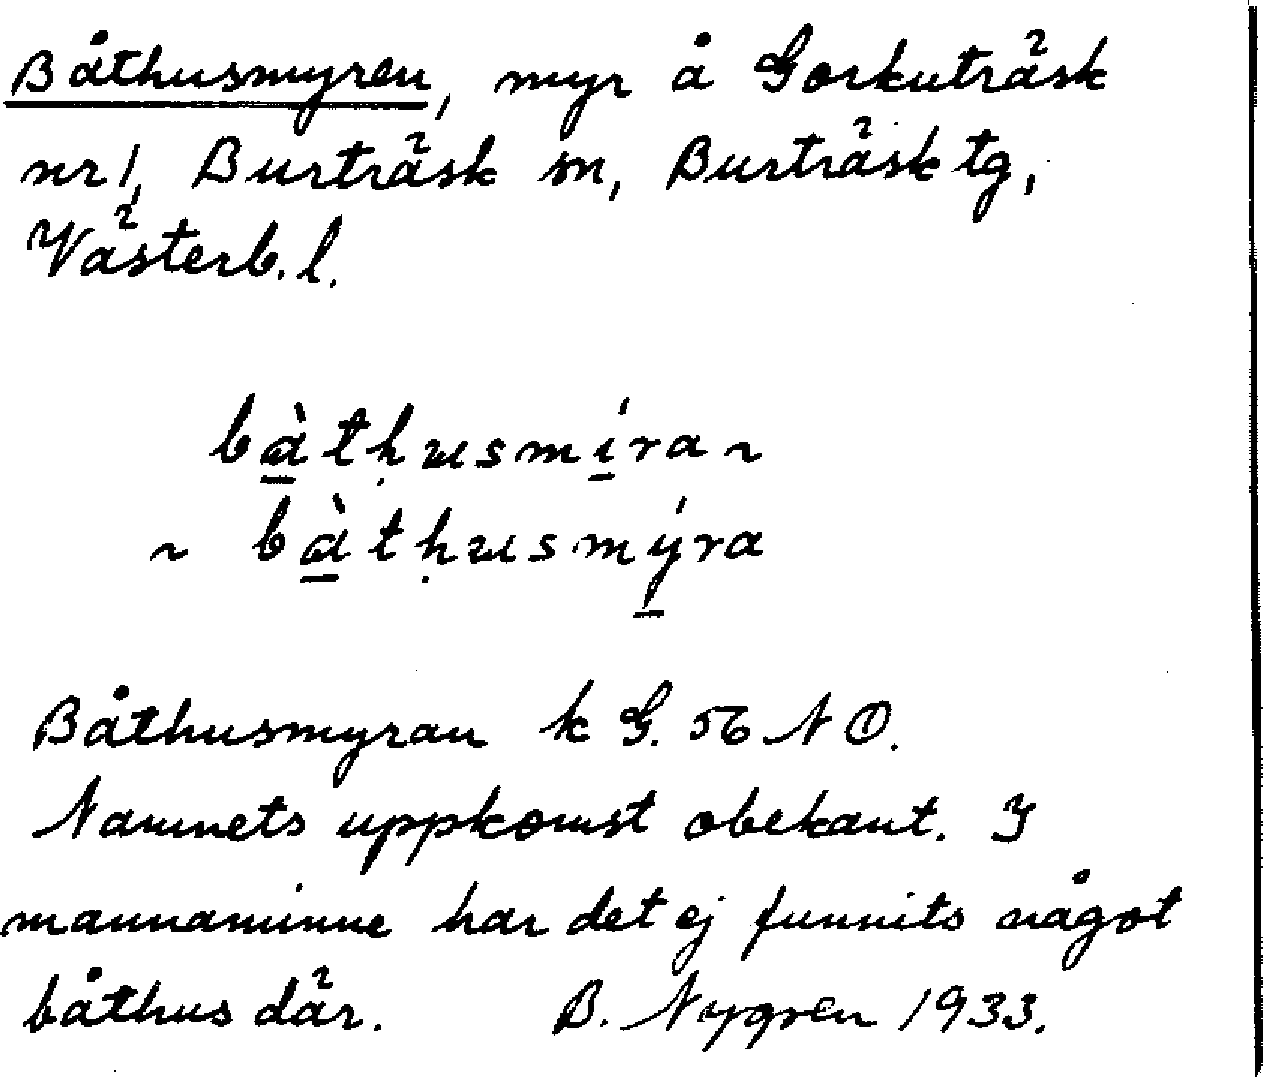 Båthusmyren, myr å Gorkuträsk
nr 1, Burträsk sn, Burträsk tg,
Västerb. l.
bà̲tḥusmí̲ra ~
~ bà̲tḥusmý̲ra
Båthusmyran k G. 56 N O.
Namnets uppkomst obekant. I
mannaminne har det ej funnits något
båthus där. B. Nygren 1933.